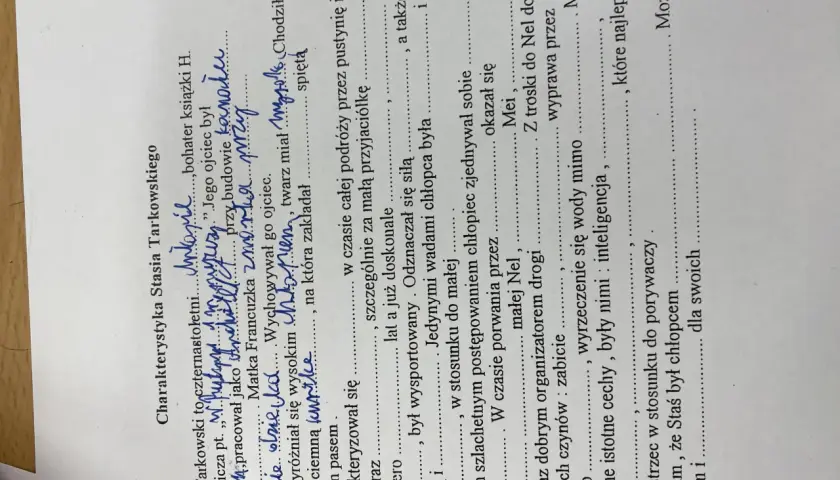 Charakterystyka Stasia Tarkowskiego
Tarkowski to czternastoletni bohater książki H.
icza pt. „ w pustyni i w puszczy ” . Jego ojciec był
, pracował jako przy budowie kanału
Matka Francuzka zmarła przy
Wychowywał go ojciec.
yróżniał się wysokim , twarz miał . Chodził
ciemną kurtkę , na która zakładał ........ spiętą
n pasem .
kteryzował się ........ w czasie całej podróży przez pustynię i
raz ........ , szczególnie za małą przyjaciółkę ........
ero ........ lat a już doskonale ........ , ........
........ , był wysportowany . Odznaczał się siłą ........ , a takż
i ........ . Jedynymi wadami chłopca była ........ i
........ , w stosunku do małej ........ .
n szlachetnym postępowaniem chłopiec zjednywał sobie ........
........ . W czasie porwania przez ........ okazał się
........ małej Nel , ........ Mei , ........
az dobrym organizatorem drogi ........ . Z troski do Nel do
ch czynów : zabicie ........ , ........ , ........ wyprawa przez
........ , wyrzeczenie się wody mimo ........
ne istotne cechy , były nimi : inteligencja , ........ ,
........ , ........ , ........ , które najlep
trzec w stosunku do porywaczy .
m , że Staś był chłopcem ........ ........ . Moż
i ........ dla swoich ........ .